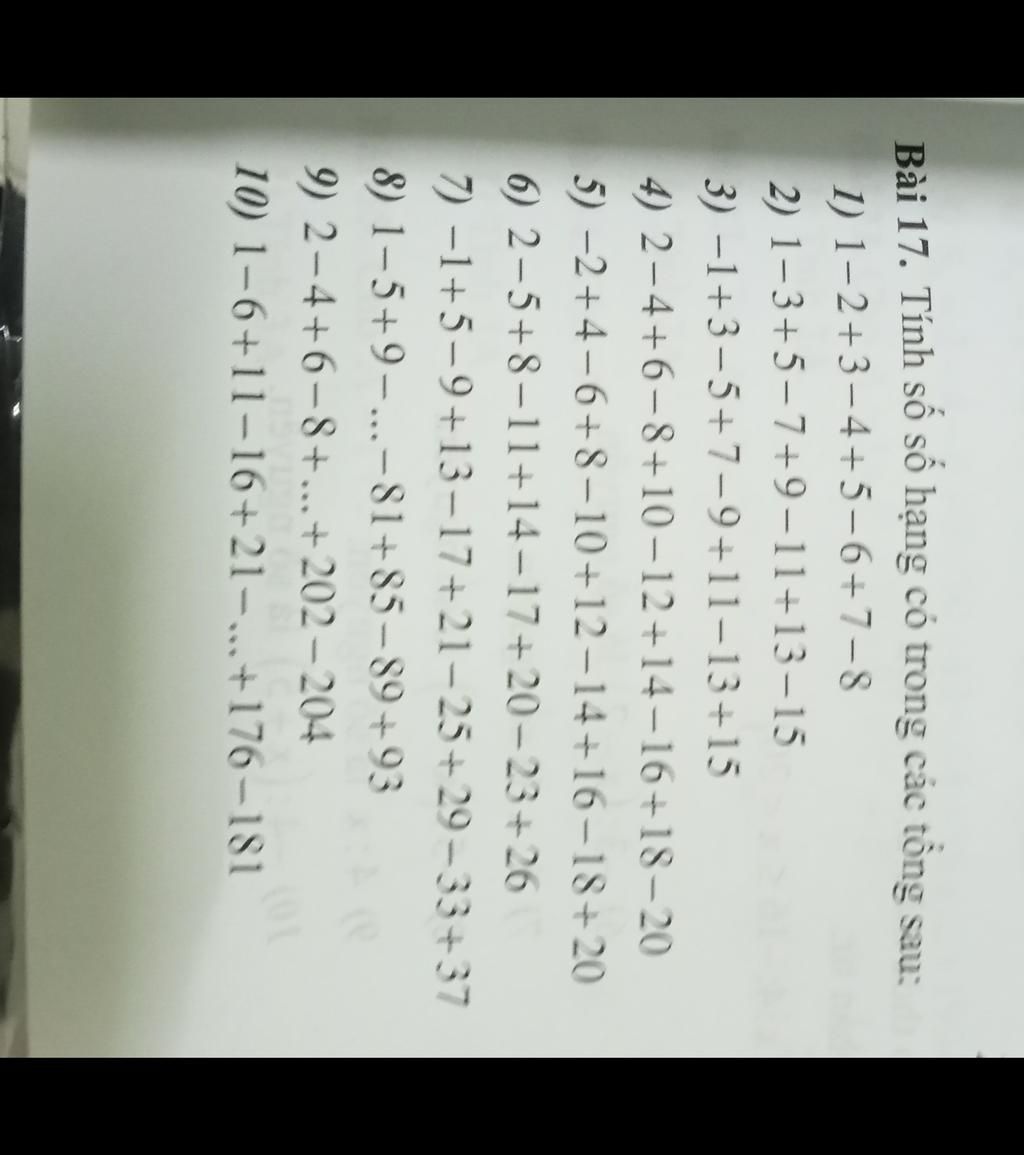 Bài 17. Tính số số hạng có trong các tổng sau:
1) 1−2+3−4+5−6+7−8
2) 1−3+5−7+9−11+13−15
3) −1+3−5+7−9+11−13+15
4) 2−4+6−8+10−12+14−16+18−20
5) −2+4−6+8−10+12−14+16−18+20
6) 2−5+8−11+14−17+20−23+26
7) −1+5−9+13−17+21−25+29−33+37
8) 1−5+9−...−81+85−89+93
9) 2−4+6−8+...+202−204
10) 1−6+11−16+21−...+176−181